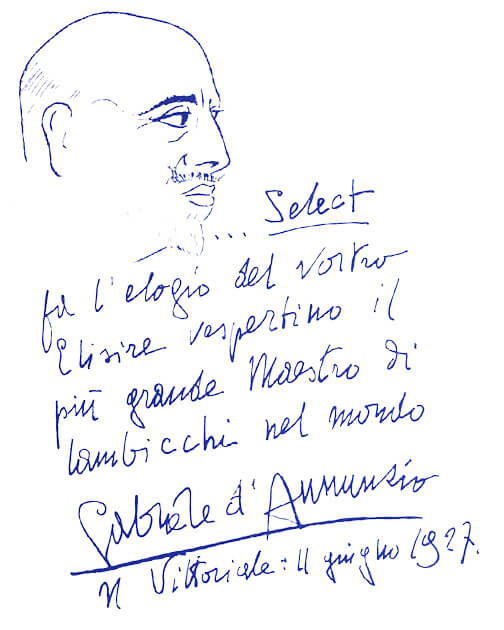 ... Select
fa l'elogio del vostro
Elisire vespertino il
più grande Maestro di
lambicchi nel mondo
Gabriele d'Annunzio
Il Vittoriale: 11 giugno 1927.